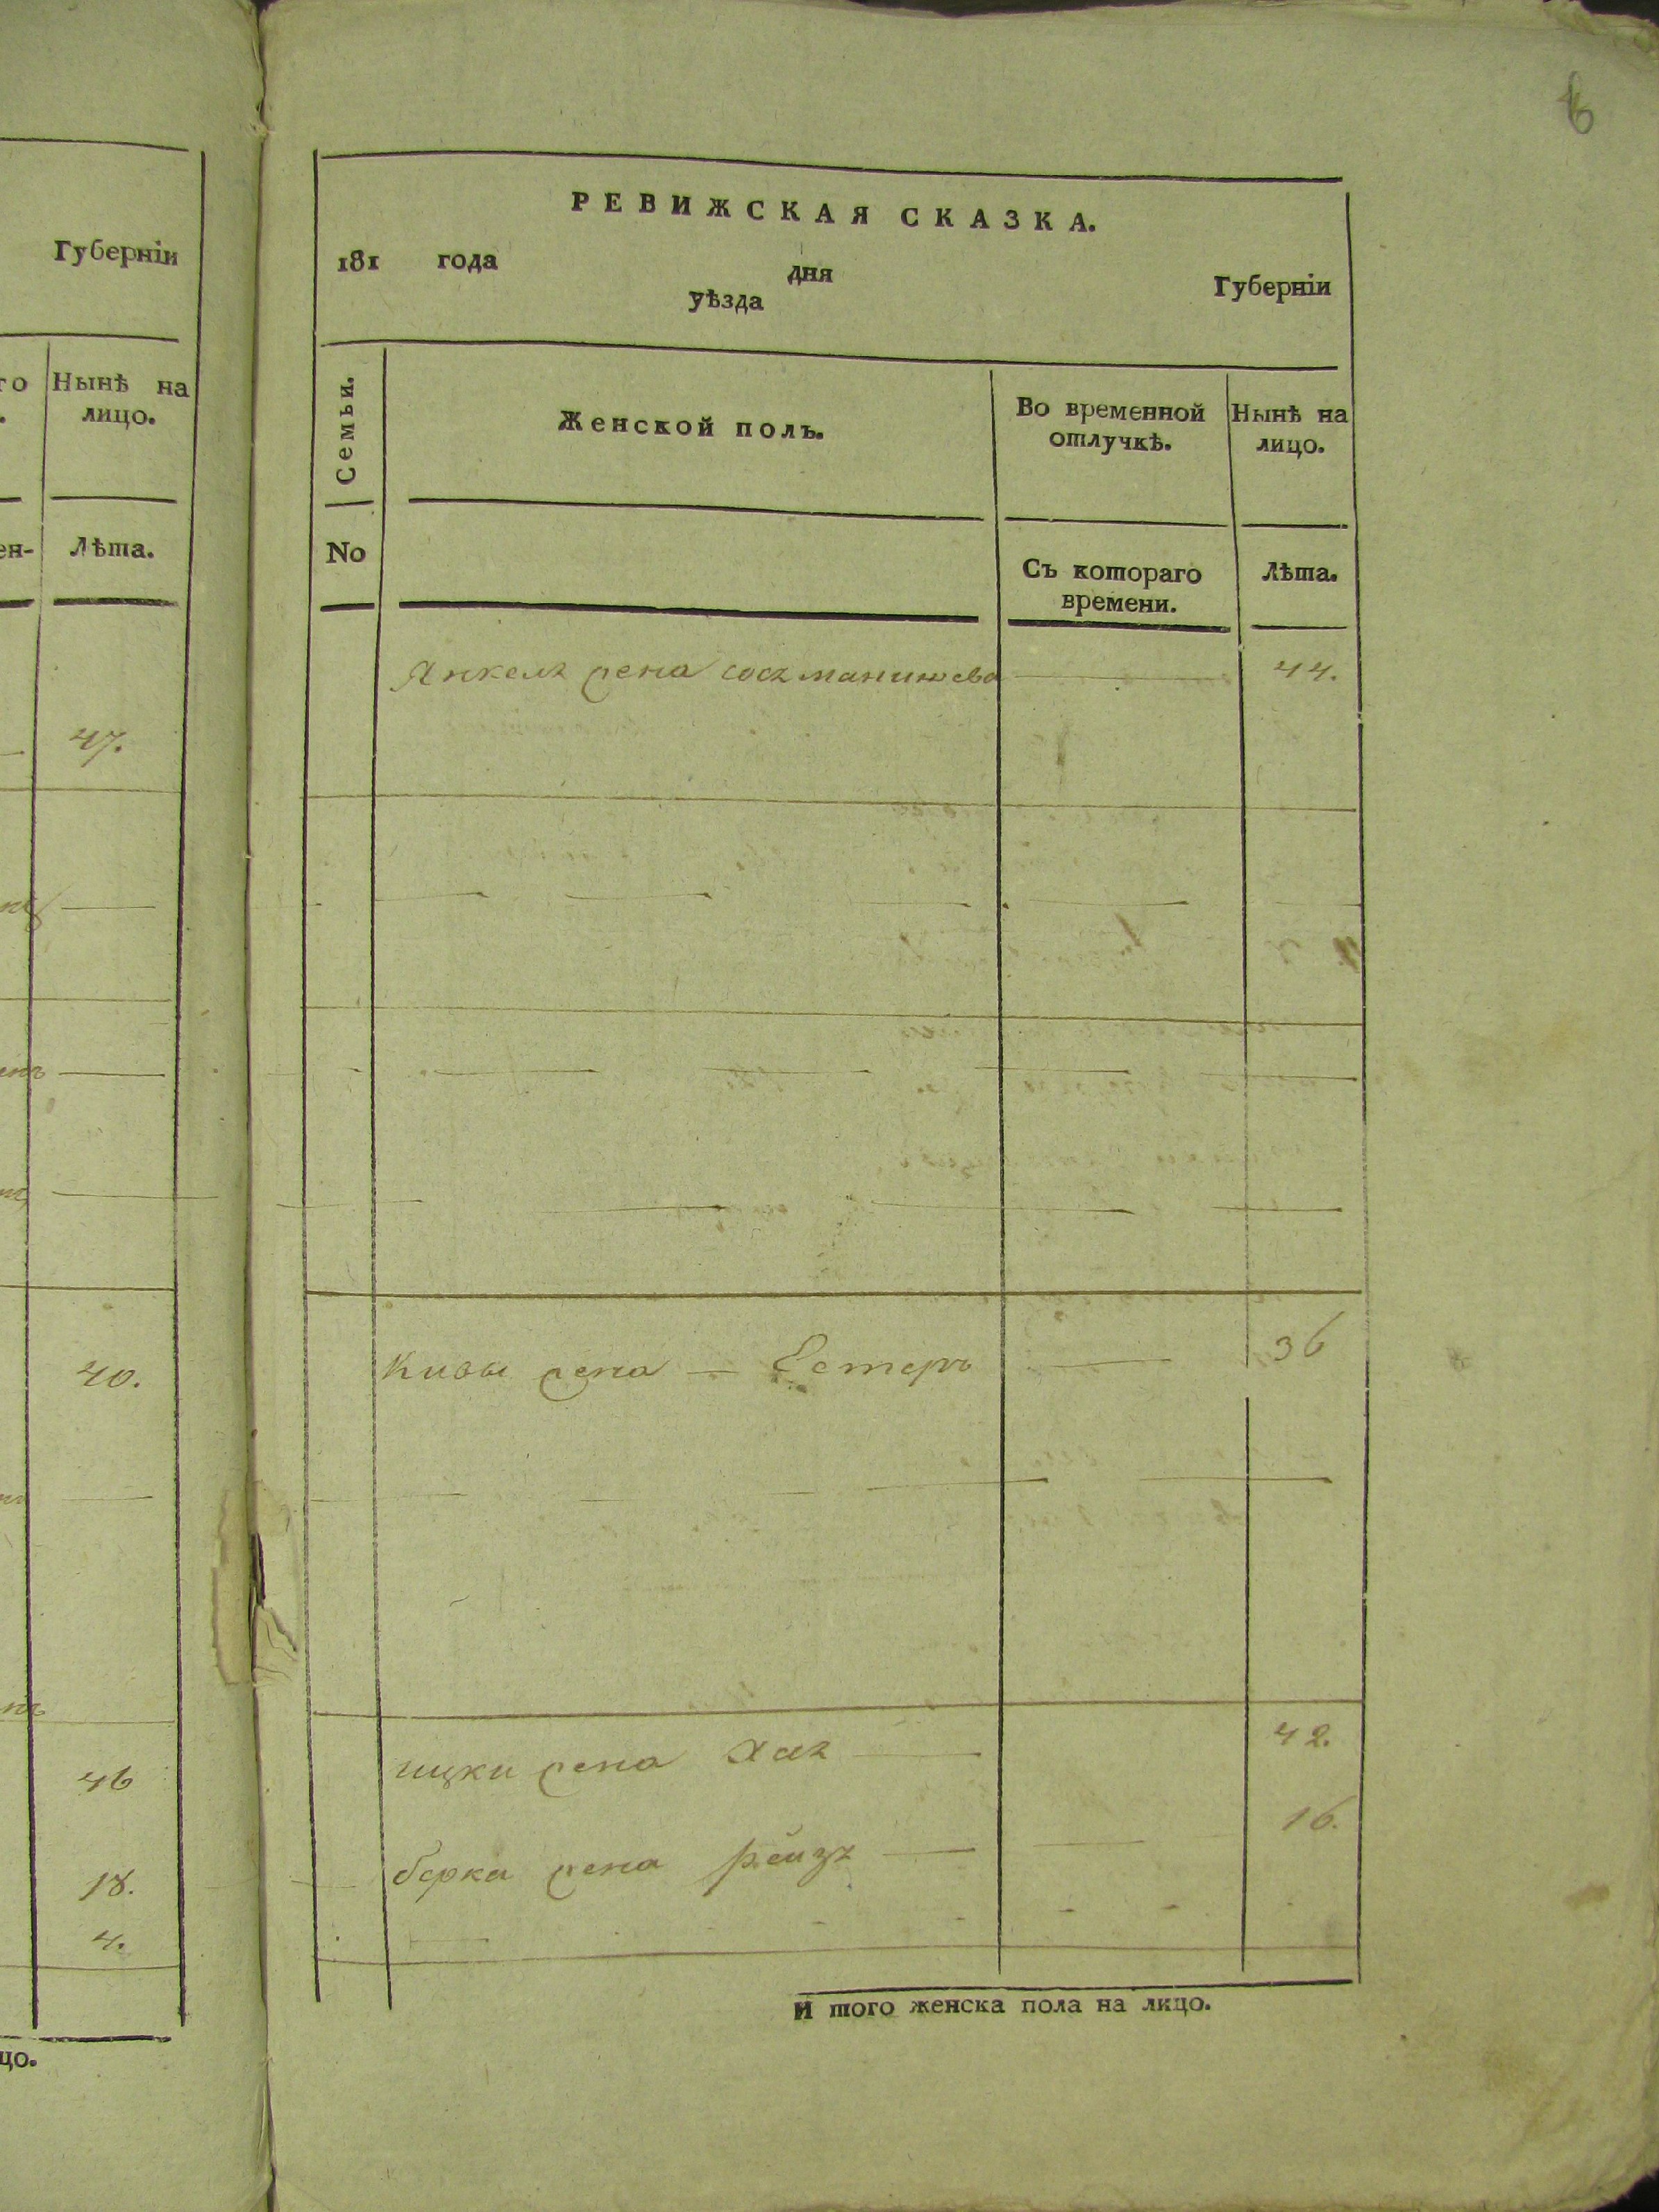 6
Губерніи
го Нынѣ на
лицо.
ен- Лѣта.
47.
40.
46
18.
4.
цо.
РЕВИЖСКАЯ СКАЗКА.
181 года дня
уѣзда Губерніи
Семьи. Женской полъ. Во временной отлучкѣ. Нынѣ на лицо.
No Съ котораго времени. Лѣта.
Янкеля жена 44.
Кивы жена — Естеръ — 36
ицки жена Хая — 42.
берка жена рейзя — 16.
И того женска пола на лицо.